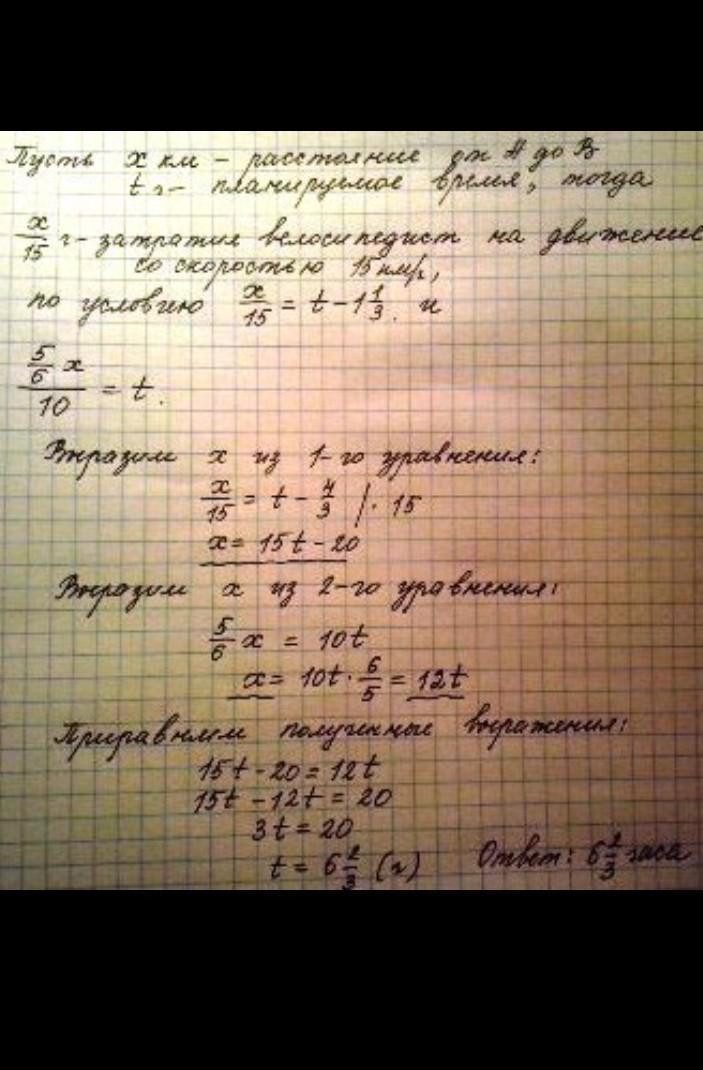 Пусть x км – расстояние от A до B
t ч – планируемое время, тогда
x/15 ч – затратил велосипедист на движение
со скоростью 15 км/ч,
по условию x/15 = t – 1 1/3. и
(5/6 x)/10 = t.
Выразим x из 1-го уравнения:
x/15 = t – 4/3 | · 15
x = 15t – 20
Выразим x из 2-го уравнения:
5/6 x = 10t
x = 10t · 6/5 = 12t
Приравняем полученные выражения:
15t – 20 = 12t
15t – 12t = 20
3t = 20
t = 6 2/3 (ч) Ответ: 6 2/3 часа